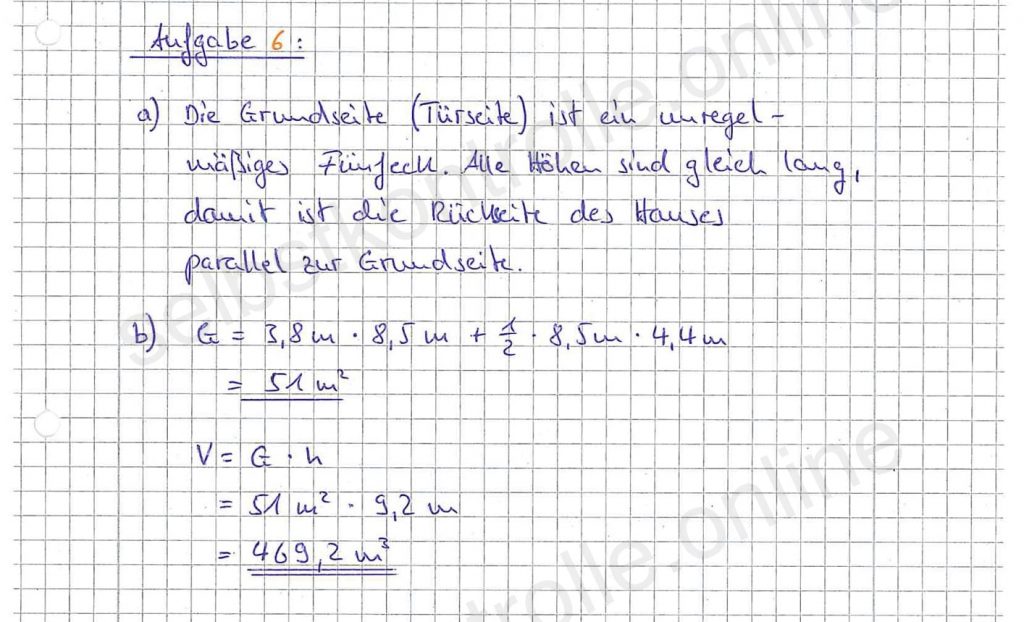 Aufgabe 6:
a) Die Grundseite (Türseite) ist ein unregel-
mäßiges Fünfeck. Alle Höhen sind gleich lang,
damit ist die Rückseite des Hauses
parallel zur Grundseite.
b) G = 3,8 m · 8,5 m + 1/2 · 8,5 m · 4,4 m
= 51 m²
V = G · h
= 51 m² · 9,2 m
= 469,2 m³
selbstkontrolle.online
selbstkontrolle.online